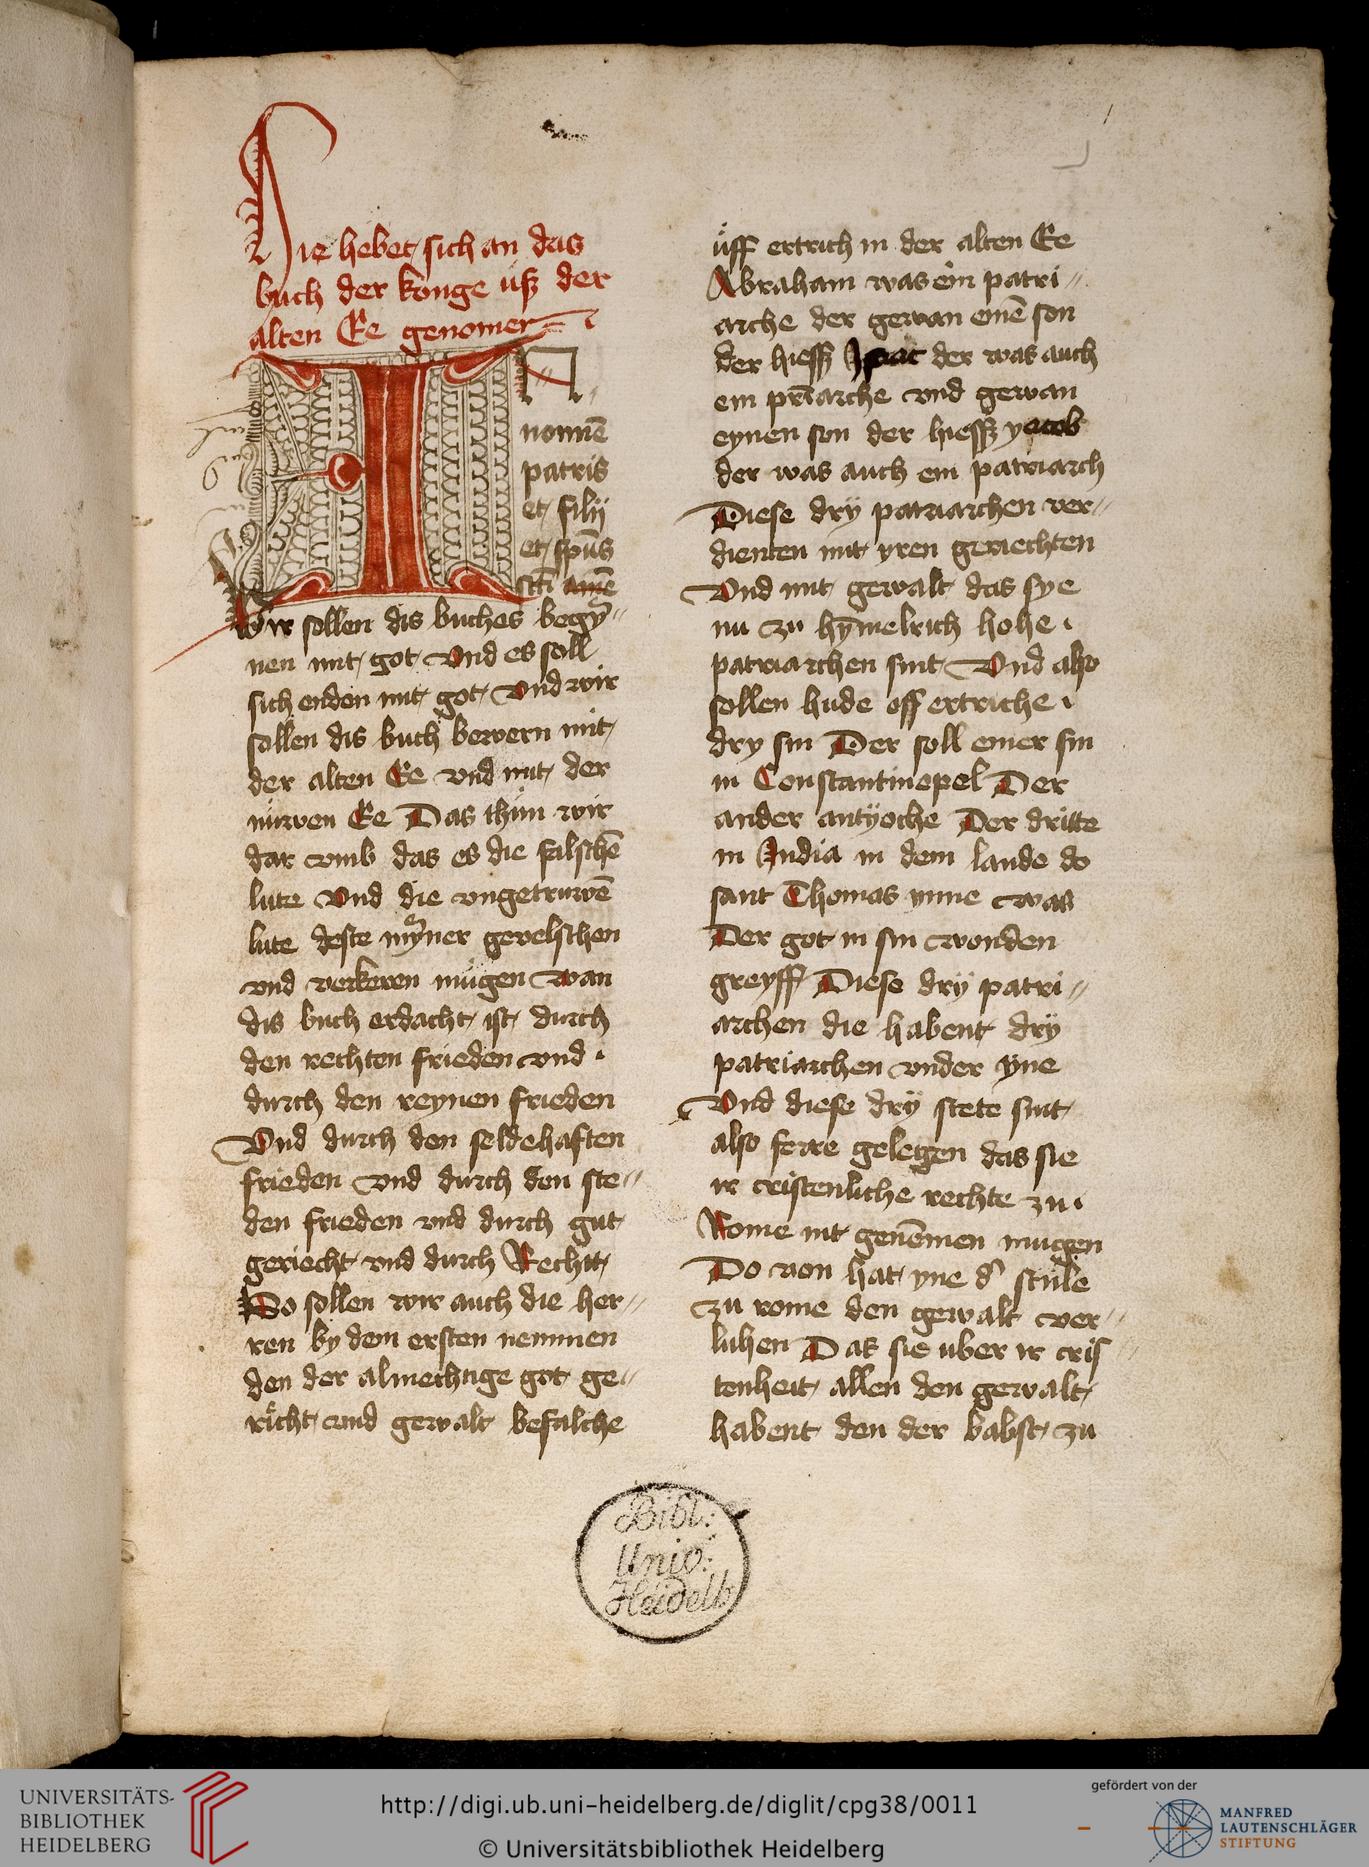 Hie hebet sich an das
buch der konge uß der
alten Ee genomen
IN
nomīe
patris
et filij
et spūs
sctī amē
Wir sollen dis buches begȳ〃
nen mit got Vnd es soll
sich enden mit got Vnd wir
sollen dis buch bewern mit
der alten Ee vnd mit der
nuwen Ee Das thun wir
dar vmb das es die falschē
lute Vnd die vngetruwē
lute deste myner gevelschen
vnd verkeren mugen wan
dis buch erdacht ist durch
den rechten frieden vnd ·
durch den reynen frieden
Vnd durch den seldehaften
frieden Vnd durch den ste〃
den frieden vnd durch gut
geriecht vnd durch Recht
So sollen wir auch die her〃
ren by dem ersten nemmen
den der almechtige got ge〃
richt vnd gewalt befalche
1
uff ertrich in der alten Ee
Abraham was ein patri〃
arche der gewan einē son
der hieß Isaac der was auch
ein pr̄iarche vnd gewan
eynen son der hieß yacob
der was auch ein patriarch
Diese dry patriarchen ver〃
dienten mit yren geriechten
Vnd mit gewalt das sye
nu zu hȳmelrich hohe ·
patriarchen sint Vnd also
sollen hude off ertriche ·
dry sin Der soll einer sin
in Constantinopel Der
ander antÿoche Der dritte
in India in dem lande do
sant Thomas ynne was
Der got in sin wonden
greyff Diese drÿ patri〃
archen die habent drÿ
patriarchen vnder yne
Vnd diese drÿ stete sint
also ferre gelegen das sie
ir cristenliche rechte zu ·
Rome nit genēmen mugen
Do von hat yne d' stule
zu rome den gewalt ver〃
luhen Das sie uber ir cris〃
tenheit allen den gewalt
habent den der babst zu
Bibl:
Univ:
Heidelb
UNIVERSITÄTS-
BIBLIOTHEK
HEIDELBERG
http://digi.ub.uni-heidelberg.de/diglit/cpg38/0011
© Universitätsbibliothek Heidelberg
gefördert von der
MANFRED
LAUTENSCHLÄGER
STIFTUNG